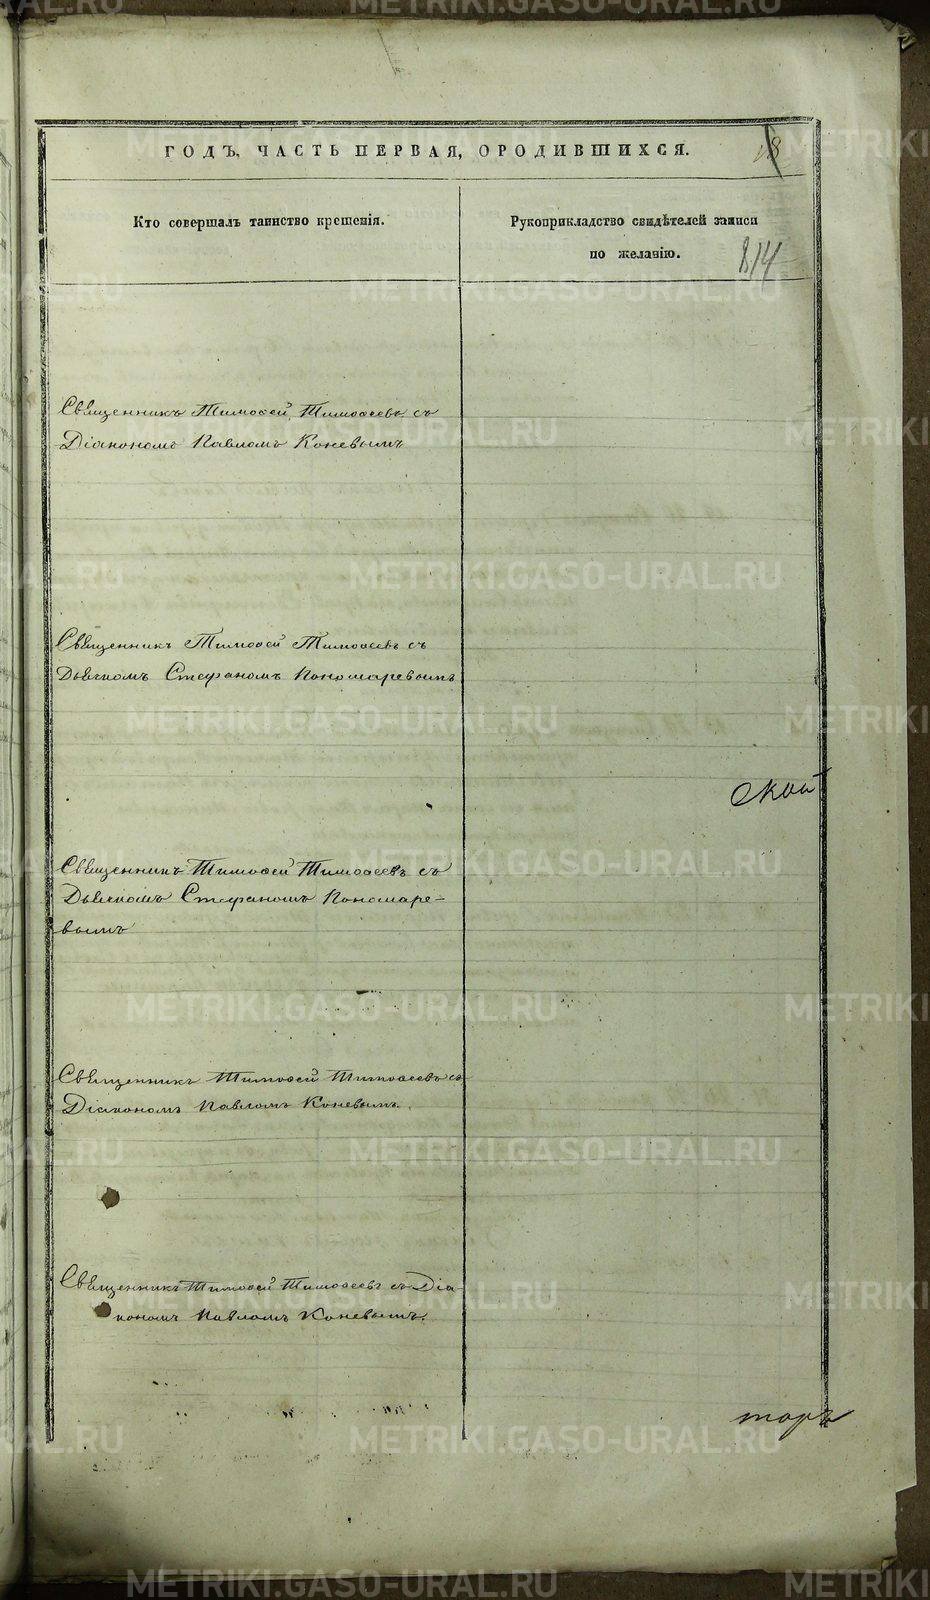 ГОДЪ, ЧАСТЬ ПЕРВАЯ, О РОДИВШИХСЯ.
18
Кто совершалъ таинство крещенія.
Рукоприкладство свидѣтелей записи
по желанію.
814
Священникъ Тимоѳей Тимоѳеевъ съ
Діакономъ Павломъ Коневымъ
Священникъ Тимоѳей Тимоѳеевъ съ
Дьячкомъ Стефаномъ Пономаревымъ
ской
Священникъ Тимоѳей Тимоѳеевъ съ
Дьячкомъ Стефаномъ Пономаре-
вымъ
Священникъ Тимоѳей Тимоѳеевъ съ
Діакономъ Павломъ Коневымъ.
Священникъ Тимоѳей Тимоѳеевъ съ Діа-
кономъ Павломъ Коневымъ.
торъ
METRIKI.GASO-URAL.RU